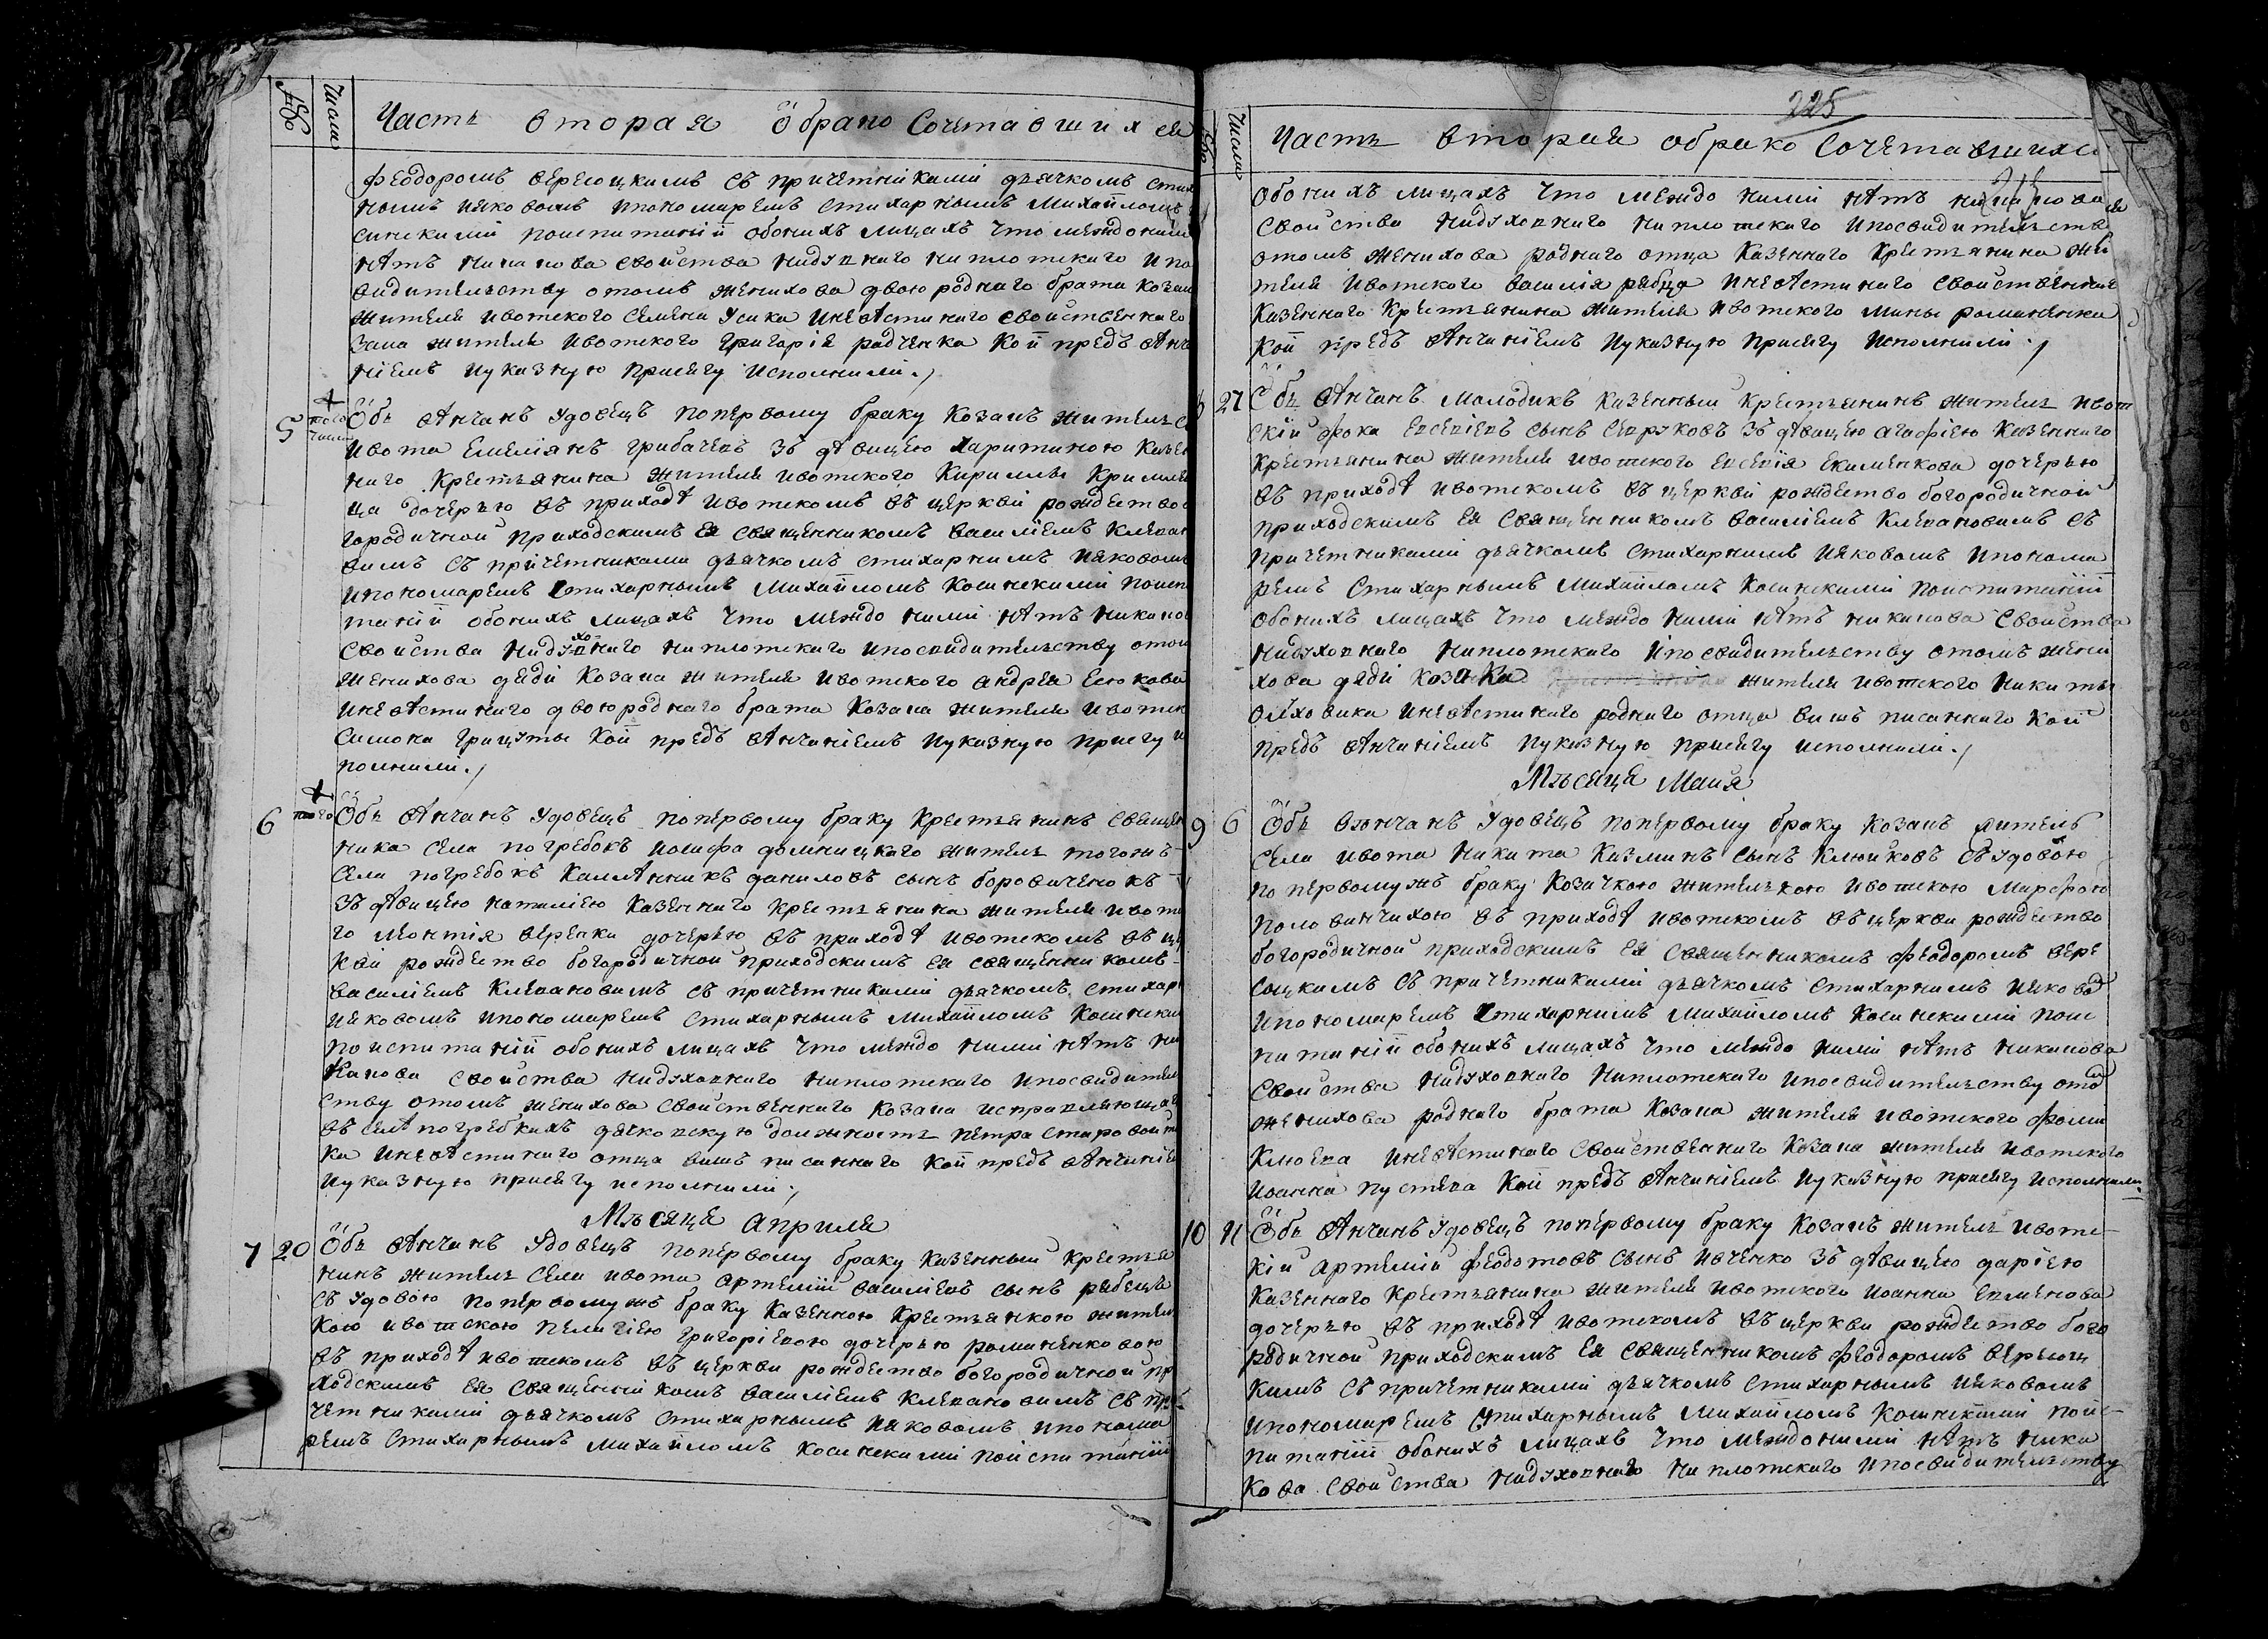 Число
Часть вторая о бракосочетавшихся
феодоромъ верещкимъ съ причетниками дьячкомъ стих
нымъ иаковомъ ипономаремъ стихарнымъ Михайломъ
синскими поиспитаніи обоихъ лицахъ что междо ними
нѣтъ никакова свойства нидухнаго ниплотскаго ипо
видителству отомъ женихова двоюроднаго брата козак
жителя ивотскаго Семена Усика иневѣстинаго свойственнаго
зака жителя ивотскаго Григорія радченка кои предъ вѣнч
ніемъ иуказную присягу исполнили
5 того числа Обв вѣнчанъ удовецъ поперьвому браку козакъ житель С
ивота Емеліянъ грибачевъ зъ дѣвицею харитиною казен
наго крестьянина жителя ивотскаго Кириллы Кримле
ца дочерью въ приходѣ ивотскомъ въ церкви рождество
городичной приходскимъ ея священникомъ василіемъ клеван
вимъ съ причетниками дьячкомъ стихарнимъ иаковомъ
ипономаремъ стихарнымъ Михайломъ косинскими поисп
таніи обоихъ лицахъ что междо ними нѣтъ никаков
свойства нидуховнаго ниплотскаго ипосвидителству отом
женихова дяди козака жителя ивотскаго андрея Есюкова
иневѣстинаго двоюроднаго брата козака жителя ивотск
Симона грицуты кои предъ вѣнчаніемъ иуказную присягу и
полнили
6 того Обв вѣнчанъ удовецъ поперьвому браку крестьянинъ священ
ника села погребокъ иосифа домницкаго житель тогожъ
села погребокъ Каллѣнникъ даниловъ сынъ боровиченокъ
зъ дѣвицею наталіею казеннаго крестьянина жителя ивотск
го леонтія веревки дочерью въ приходѣ ивотскомъ въ це
кви рождество богородичной приходскимъ ея священникомъ
василіемъ клевановимъ съ причетниками дьячкомъ стихар
иаковомъ ипономаремъ стихарнымъ Михайломъ косински
поиспитаніи обоихъ лицахъ что междо ними нѣтъ ни
какова свойства нидуховнаго ниплотскаго ипосвидител
ству отомъ женихова свойственнаго козака исправляющаг
въ селѣ погребкахъ дячковскую должность петра старовойт
ка иневѣстинаго отца вишъ писаннаго кои предъ вѣнчаніе
иуказную присягу исполнили
Мѣсяца априля
7 20 Обв вѣнчанъ удовецъ поперьвому браку казенный крестья
нинъ житель села ивота артемій василіевъ сынъ рябецъ
съ удовою поперьвомужъ браку казенною крестьянкою жител
кою ивотскою пелагіею григоріевою дочерью романенковою
въ приходѣ ивотскомъ въ церкви рождество богородичной пр
ходскимъ ея священникомъ василіемъ клевановимъ съ при
четниками дьячкомъ стихарнымъ иаковомъ ипонома
ремъ стихарнымъ михайломъ косинскими поиспитаніи
225
Число
Часть вторая о бракосочетавшихся
обоихъ лицахъ что междо ними нѣтъ никакова
свойства нидуховнаго ниплотскаго ипосвидителстве
отомъ женихова роднаго отца казеннаго крестьянина жи
теля ивотскаго василія рябца иневѣстинаго свойственника
казеннаго крестьянина жителя ивотскаго мины романенка
кои предъ вѣнчаніемъ иуказную присягу исполнили
27 Обв вѣнчанъ молодикъ казенный крестьянинъ житель ивот
скій фока Евсевіевъ сынъ Севруковъ зъ дѣвицею агафіею казеннаго
крестьянина жителя ивотскаго Евсевія Екименкова дочерью
въ приходѣ ивотскомъ въ церкви рождество богородичной
приходскимъ ея священникомъ василіемъ клевановимъ съ
причетниками дьячкомъ стихарнимъ иаковомъ ипонома
ремъ стихарнымъ михайломъ косинскими поиспитаніи
обоихъ лицахъ что междо ними нѣтъ никакова свойства
нидуховнаго ниплотскаго ипосвидителству отомъ жени
хова дяди козака жителя ивотскаго никиты
олховика иневѣстинаго роднаго отца вишъ писаннаго кои
предъ вѣнчаніемъ иуказную присягу исполнили
Мѣсяца Маия
9 6 Обв вѣнчанъ удовецъ поперьвому браку козакъ житель
села ивота никита Казминъ сынъ Клюиковъ съ удовою
поперьвомужъ браку козачкою жителкою ивотскою Марфою
половинчихою въ приходѣ ивотскомъ въ церкви рождество
богородичной приходскимъ ея священникомъ феодоромъ вере
сицкимъ съ причетниками дьячкомъ стихарнимъ иаково
ипономаремъ стихарнимъ михайломъ косинскими поис
питаніи обоихъ лицахъ что междо ними нѣтъ никакова
свойства нидуховнаго ниплотскаго ипосвидителству отом
женихова роднаго брата козака жителя ивотскаго фоми
Клюева иневѣстинаго свойственнаго козака жителя ивотскаго
иоанна пустева кои предъ вѣнчаніемъ иуказную присягу исполнили
10 11 Обв вѣнчанъ удовецъ поперьвому браку козакъ житель ивотс
кій артемій феодотовъ сынъ ивченко зъ дѣвицею даріею
казеннаго крестьянина жителя ивотскаго иоанна
дочерью въ приходѣ ивотскомъ въ церкви рождество бого
родичной приходскимъ ея священникомъ феодоромъ
кимъ съ причетниками дьячкомъ стихарнымъ иаковомъ
ипономаремъ стихарнымъ михайломъ косинскими поис
питаніи обоихъ лицахъ что междо ними нѣтъ ника
кова свойства нидуховнаго ниплотскаго ипосвидителству